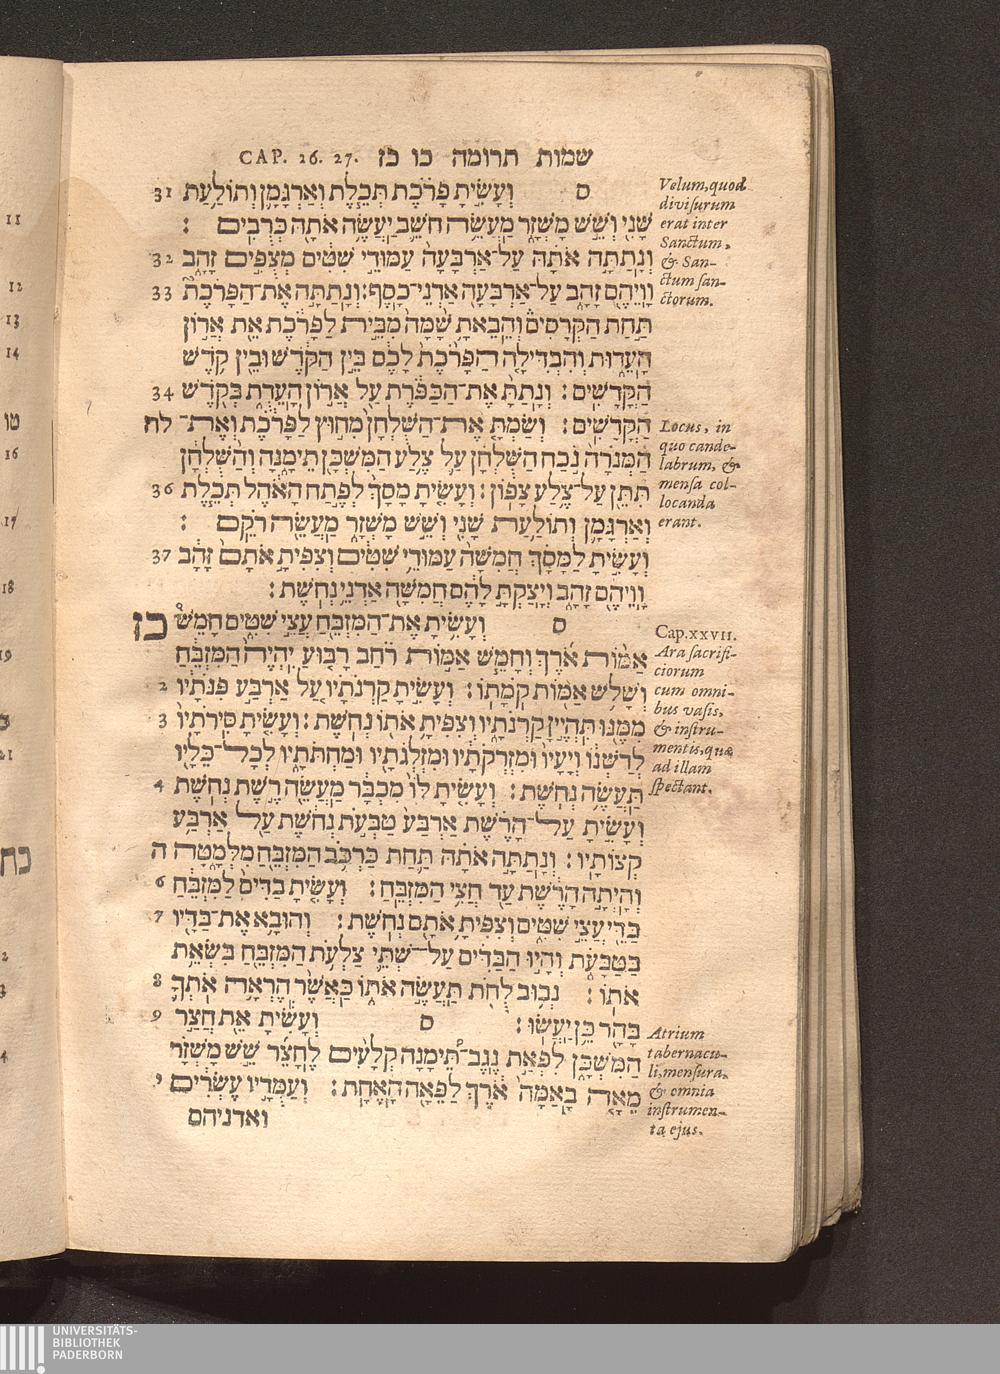 CAP. 26. 27. שמות תרומה כו כז
31 ס וְעָשִׂיתָ פָרֹכֶת תְּכֵלֶת וְאַרְגָּמָן וְתוֹלַעַת
שָׁנִי וְשֵׁשׁ מָשְׁזָר מַעֲשֵׂה חֹשֵׁב יַעֲשֶׂה אֹתָהּ כְּרֻבִים :
32 וְנָתַתָּה אֹתָהּ עַל־אַרְבָּעָה עַמּוּדֵי שִׁטִּים מְצֻפִּים זָהָב
33 וָוֵיהֶם זָהָב עַל־אַרְבָּעָה אַדְנֵי־כָסֶף : וְנָתַתָּה אֶת־הַפָּרֹכֶת
תַּחַת הַקְּרָסִים וְהֵבֵאתָ שָׁמָּה מִבֵּית לַפָּרֹכֶת אֵת אֲרוֹן
הָעֵדוּת וְהִבְדִּילָה הַפָּרֹכֶת לָכֶם בֵּין הַקֹּדֶשׁ וּבֵין קֹדֶשׁ
34 הַקֳּדָשִׁים : וְנָתַתָּ אֶת־הַכַּפֹּרֶת עַל אֲרוֹן הָעֵדֻת בְּקֹדֶשׁ
לה הַקֳּדָשִׁים : וְשַׂמְתָּ אֶת־הַשֻּׁלְחָן מִחוּץ לַפָּרֹכֶת וְאֶת־
הַמְּנֹרָה נֹכַח הַשֻּׁלְחָן עַל צֶלַע הַמִּשְׁכָּן תֵּימָנָה וְהַשֻּׁלְחָן
36 תִּתֵּן עַל־צֶלַע צָפוֹן : וְעָשִׂיתָ מָסָךְ לְפֶתַח הָאֹהֶל תְּכֵלֶת
וְאַרְגָּמָן וְתוֹלַעַת שָׁנִי וְשֵׁשׁ מָשְׁזָר מַעֲשֵׂה רֹקֵם :
37 וְעָשִׂיתָ לַמָּסָךְ חֲמִשָּׁה עַמּוּדֵי שִׁטִּים וְצִפִּיתָ אֹתָם זָהָב
וָוֵיהֶם זָהָב וְיָצַקְתָּ לָהֶם חֲמִשָּׁה אַדְנֵי נְחֹשֶׁת :
כז ס וְעָשִׂיתָ אֶת־הַמִּזְבֵּחַ עֲצֵי שִׁטִּים חָמֵשׁ
אַמּוֹת אֹרֶךְ וְחָמֵשׁ אַמּוֹת רֹחַב רָבוּעַ יִהְיֶה הַמִּזְבֵּחַ
2 וְשָׁלֹשׁ אַמּוֹת קֹמָתוֹ : וְעָשִׂיתָ קַרְנֹתָיו עַל אַרְבַּע פִּנֹּתָיו
3 מִמֶּנּוּ תִּהְיֶיןָ קַרְנֹתָיו וְצִפִּיתָ אֹתוֹ נְחֹשֶׁת : וְעָשִׂיתָ סִּירֹתָיו
לְדַשְּׁנוֹ וְיָעָיו וּמִזְרְקֹתָיו וּמִזְלְגֹתָיו וּמַחְתֹּתָיו לְכָל־כֵּלָיו
4 תַּעֲשֶׂה נְחֹשֶׁת : וְעָשִׂיתָ לּוֹ מִכְבָּר מַעֲשֵׂה רֶשֶׁת נְחֹשֶׁת
וְעָשִׂיתָ עַל־הָרֶשֶׁת אַרְבַּע טַבְּעֹת נְחֹשֶׁת עַל אַרְבַּע
ה קְצוֹתָיו : וְנָתַתָּה אֹתָהּ תַּחַת כַּרְכֹּב הַמִּזְבֵּחַ מִלְּמָטָּה
6 וְהָיְתָה הָרֶשֶׁת עַד חֲצִי הַמִּזְבֵּחַ : וְעָשִׂיתָ בַדִּים לַמִּזְבֵּחַ
7 בַּדֵּי עֲצֵי שִׁטִּים וְצִפִּיתָ אֹתָם נְחֹשֶׁת : וְהוּבָא אֶת־בַּדָּיו
בַּטַּבָּעֹת וְהָיוּ הַבַּדִּים עַל־שְׁתֵּי צַלְעֹת הַמִּזְבֵּחַ בִּשְׂאֵת
8 אֹתוֹ : נְבוּב לֻחֹת תַּעֲשֶׂה אֹתוֹ כַּאֲשֶׁר הֶרְאָה אֹתְךָ
9 בָּהָר כֵּן יַעֲשׂוּ : ס וְעָשִׂיתָ אֵת חֲצַר
הַמִּשְׁכָּן לִפְאַת נֶגֶב־תֵּימָנָה קְלָעִים לֶחָצֵר שֵׁשׁ מָשְׁזָר
י מֵאָה בָאַמָּה אֹרֶךְ לַפֵּאָה הָאֶחָת : וְעַמֻּדָיו עֶשְׂרִים
ואדניהם
Velum, quod
divisurum
erat inter
Sanctum,
& San-
ctum san-
ctorum.
Locus, in
quo cande-
labrum, &
mensa col-
locanda
erant.
Cap. XXVII.
Ara sacrifi-
ciorum
cum omni-
bus vasis,
& instru-
mentis, quæ
ad illam
spectant.
Atrium
tabernacu-
li, mensura,
& omnia
instrumen-
ta ejus.
11
12
13
14
טו
16
17
18
19
21
כח
2
3
4
UNIVERSITÄTS-
BIBLIOTHEK
PADERBORN